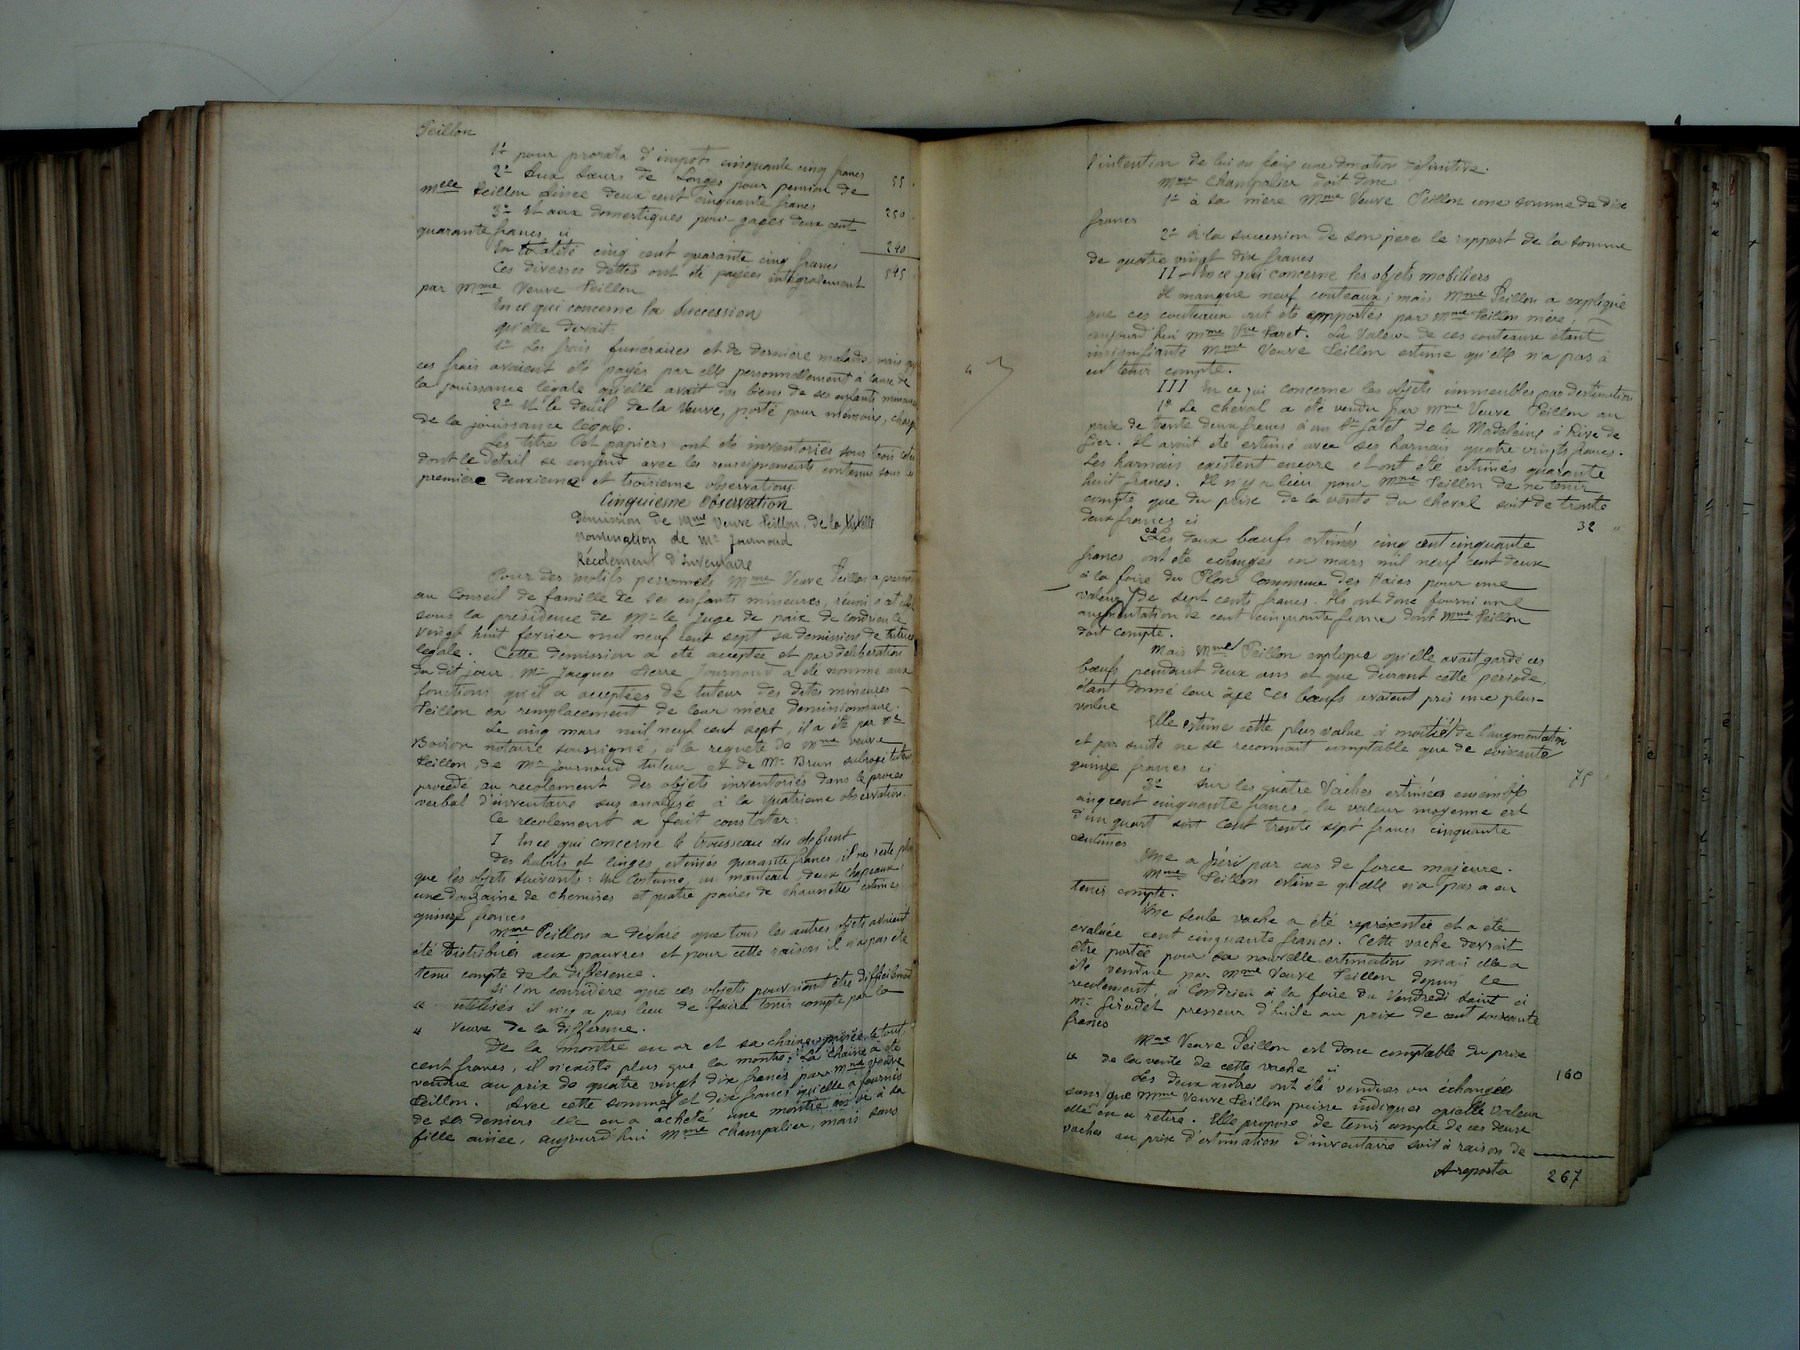 Peillon
1° pour prorata d'impots cinquante cinq francs 55
2° Aux Sœurs de Longes pour pension de
Melle Peillon ainée deux cent cinquante francs 250
3° Et aux domestiques pour gages deux cent
quarante francs ci 240
En totalité cinq cent quarante cinq francs 545
Ces diverses dettes ont été payées intégralement
par Mme Veuve Peillon
En ce qui concerne la Succession
qu'elle devait:
1° Les frais funéraires et de dernière maladie, mais que
ces frais avaient été payés par elle personnellement à cause de
la jouissance légale qu'elle avait des biens de ses enfants mineures
2° Et le deuil de la Veuve, porté pour mémoire, charge
de la jouissance légale.
Les titres et papiers ont été inventoriés sous trois cotes
dont le détail se confond avec les renseignements contenus sous les
première deuxième et troisième observations.
Cinquième Observation
Démission de Mme Veuve Peillon, de la tutelle
nomination de Mr Journoud
Récolement d'Inventaire
Pour des motifs personnels Mme Veuve Peillon a présenté
au Conseil de famille de ses enfants mineures, réuni à cet effet
sous la présidence de Mr le Juge de paix de Condrieu le
vingt huit février mil neuf cent sept sa démission de tutrice
légale. Cette démission a été acceptée et par délibération
du dit jour Mr Jacques Pierre Journoud a été nommé aux
fonctions qu'il a acceptées de tuteur des dites mineures
Peillon en remplacement de leur mère démissionnaire.
Le cinq mars mil neuf cent sept, il a été par Me
Boiron notaire soussigné, à la requête de Mme veuve
Peillon, de Mr Journoud tuteur et de Mr Brun subrogé tuteur
procédé au récolement des objets inventoriés dans le procès
verbal d'inventaire sus analysé à la quatrième observation.
Ce recolement a fait constater:
I En ce qui concerne le trousseau du défunt
Des habits et linges, estimés quarante francs, il ne reste plus
que les objets suivants: Un costume, un manteau, deux chapeaux
une douzaine de chemises et quatre paires de chaussettes estimés
quinze francs
Mme Peillon a déclaré que tous les autres objets avaient
été distribués aux pauvres et pour cette raison il n'a pas été
tenu compte de la différence.
Si l'on considère que ces objets pouvaient être difficilement
" utilisés il n'y a pas lieu de faire tenir compte par la
" Veuve de la différence.
De la montre en or et sa chaine, prisée le tout
cent francs, il n'existe plus que la montre. La chaine a été
vendue au prix de quatre vingt dix francs par Mme veuve
Peillon. Avec cette somme et dix francs qu'elle a fournis
de ses deniers elle en a acheté une montre à sa
fille ainée, aujourd'hui Mme Champalier, mais sans
l'intention de lui en faire une donation définitive.
Mme Champalier doit donc
1° à sa mère Mme Veuve Peillon une somme de dix
francs
2° A la succession de son père le rapport de la somme
de quatre vingt dix francs
II En ce qui concerne les objets mobiliers
Il manque neuf couteaux; mais Mme Peillon a expliqué
que ces couteaux ont été apportés par Mme Peillon mère,
aujourd'hui Mme Vve Paret. La valeur de ces couteaux étant
insignifiante Mme Veuve Peillon estime qu'elle n'a pas à
en tenir compte.
III En ce qui concerne les objets immeubles par destination
1° Le cheval a été vendu par Mme Veuve Peillon au
prix de trente deux francs à un Sr Jalet de la Madeleine à Rive de
Gier. Il avait été estimé avec ses harnais quatre vingts francs.
Les harnais existent encore et ont été estimés quarante
huit francs. Il n'y a lieu pour Mme Peillon de ne tenir
compte que du prix de la vente du cheval soit de trente
deux francs ci 32 "
2° Les deux bœufs estimés cinq cent cinquante
francs ont été échangés en mars mil neuf cent deux
à la foire du Plan Commune des Haies pour une
valeur de sept cents francs. Ils ont donc fourni une
augmentation de cent cinquante francs dont Mme Peillon
doit compte.
Mais Mme Peillon explique qu'elle avait gardé ces
bœufs pendant deux ans et que durant cette période,
étant donné leur âge ces bœufs avaient pris une plus-
value
Elle estime cette plus value à moitié de l'augmentation
et par suite ne se reconnait comptable que de soixante
quinze francs ci 75
3° Sur les quatre vaches estimées ensemble
cinq cent cinquante francs, la valeur moyenne est
d'un quart soit cent trente sept francs cinquante
centimes
Une a péri par cas de force majeure.
Mme Peillon estime qu'elle n'a pas à en
tenir compte.
Une seule vache a été représentée et a été
evaluée cent cinquante francs. Cette vache devrait
être portée pour sa nouvelle estimation mais elle a
été vendue par Mme Veuve Peillon depuis le
recolement, à Condrieu à la foire du Vendredi Saint à
Mr Girodet presseur d'huile au prix de cent soixante
francs
Mme Veuve Peillon est donc comptable du prix
" de la vente de cette vache ci 160
Les deux autres ont été vendues ou échangées
sans que Mme veuve Peillon puisse indiquer quelle valeur
elle en a retiré. Elle propose de tenir compte de ces deux
vaches au prix d'estimation d'inventaire soit à raison de
A reporter 267